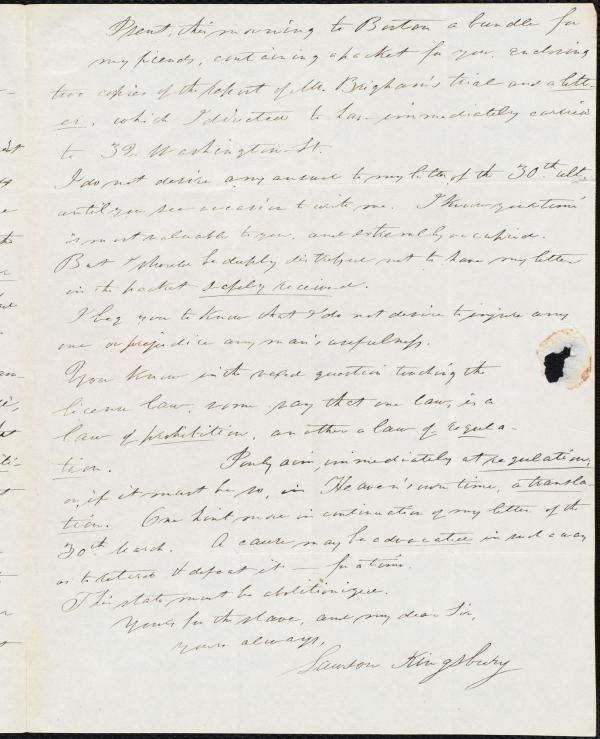 I sent, this morning to Boston a bundle for
my friends, containing a packet for you, enclosing
two copies of the report of Mr. Brigham's trial and a lett-
er, which I directed to have immediately carried
to 32. Washington-St.
I do not desire any answer to my letter of the 30th ult.
until you see occasion to write me. I know your time
is most valuable to you, and extremely occupied.
But I should be deeply distressed not to have my letter
in the packet safely received.
I beg you to know that I do not desire to injure any
one or prejudice any man's usefulness.
You know in the vexed question touching the
license law, some say that one law, is a
law of prohibition, another a law of regula-
tion. I only aim, immediately at regulation,
or, if it must be so, in Heaven's own time, a transla-
tion. One hint more in continuation of my letter of the
30th March. A cause may be advocated in such a way
as to retard & defeat it — for a time.
This state must be abolitionized.
Yours for the slave, and my dear Sir,
yours always,
Lawson Kingsbury